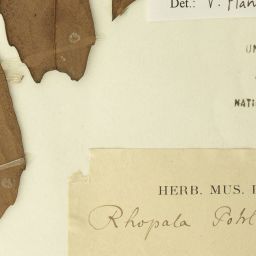 Det.: V. Plan
UN
NATI
HERB. MUS. P
Rhopala Pohl